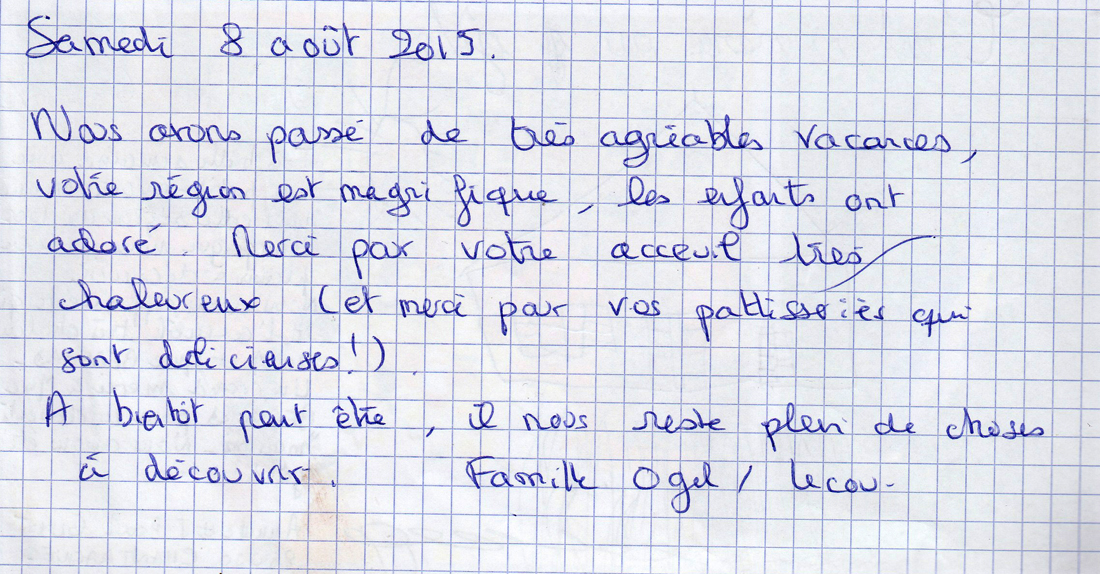 Samedi 8 août 2015.
Nous avons passé de très agréables vacances,
votre région est magnifique, les enfants ont
adoré. Merci pour votre acceuil très
chaleureux (et merci pour vos pattisseries qui
sont délicieuses!)
A bientôt peut être, il nous reste plein de choses
à découvrir. Famille Ogel / Lecou-